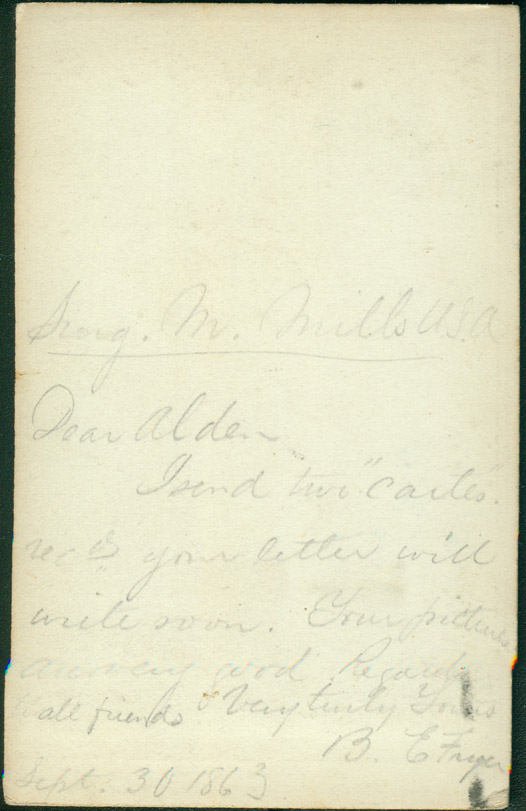 Surg. M. Mills U.S.A
Dear Alden
I send two "Cartes".
rec'd your letter will
write soon. Your pictures
are very good Regards
to all friends Very truly Yours
B. E Fryer
Sept. 30 1863